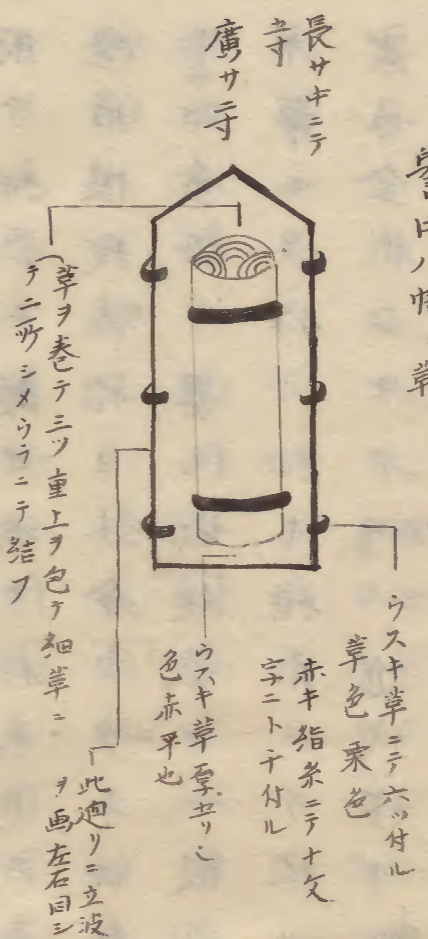 長サ中ニテ
壹寸
廣サ二寸
口ノ 革
ウスキ革ニテ六ツ付ル
革色栗色
赤キ絹糸ニテ十文
字ニトヂ付ル
ウスキ革厚五リン
色赤平也
此廻リニ立波
ヲ画左右同シ
革ヲ巻テ三ツ重上ヲ包テ細革ニ
テ二所シメウラニテ結フ